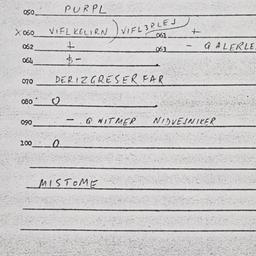 050 PURPL
X 060 VIFLKELIRN) VIFLBDLEJ
061 +
062 + 063 - GALERLE
064 +-
070 DERIZGRESER FAR
080 0
090 - GWITMER NIDVESNIKER
100 0
MISTOME